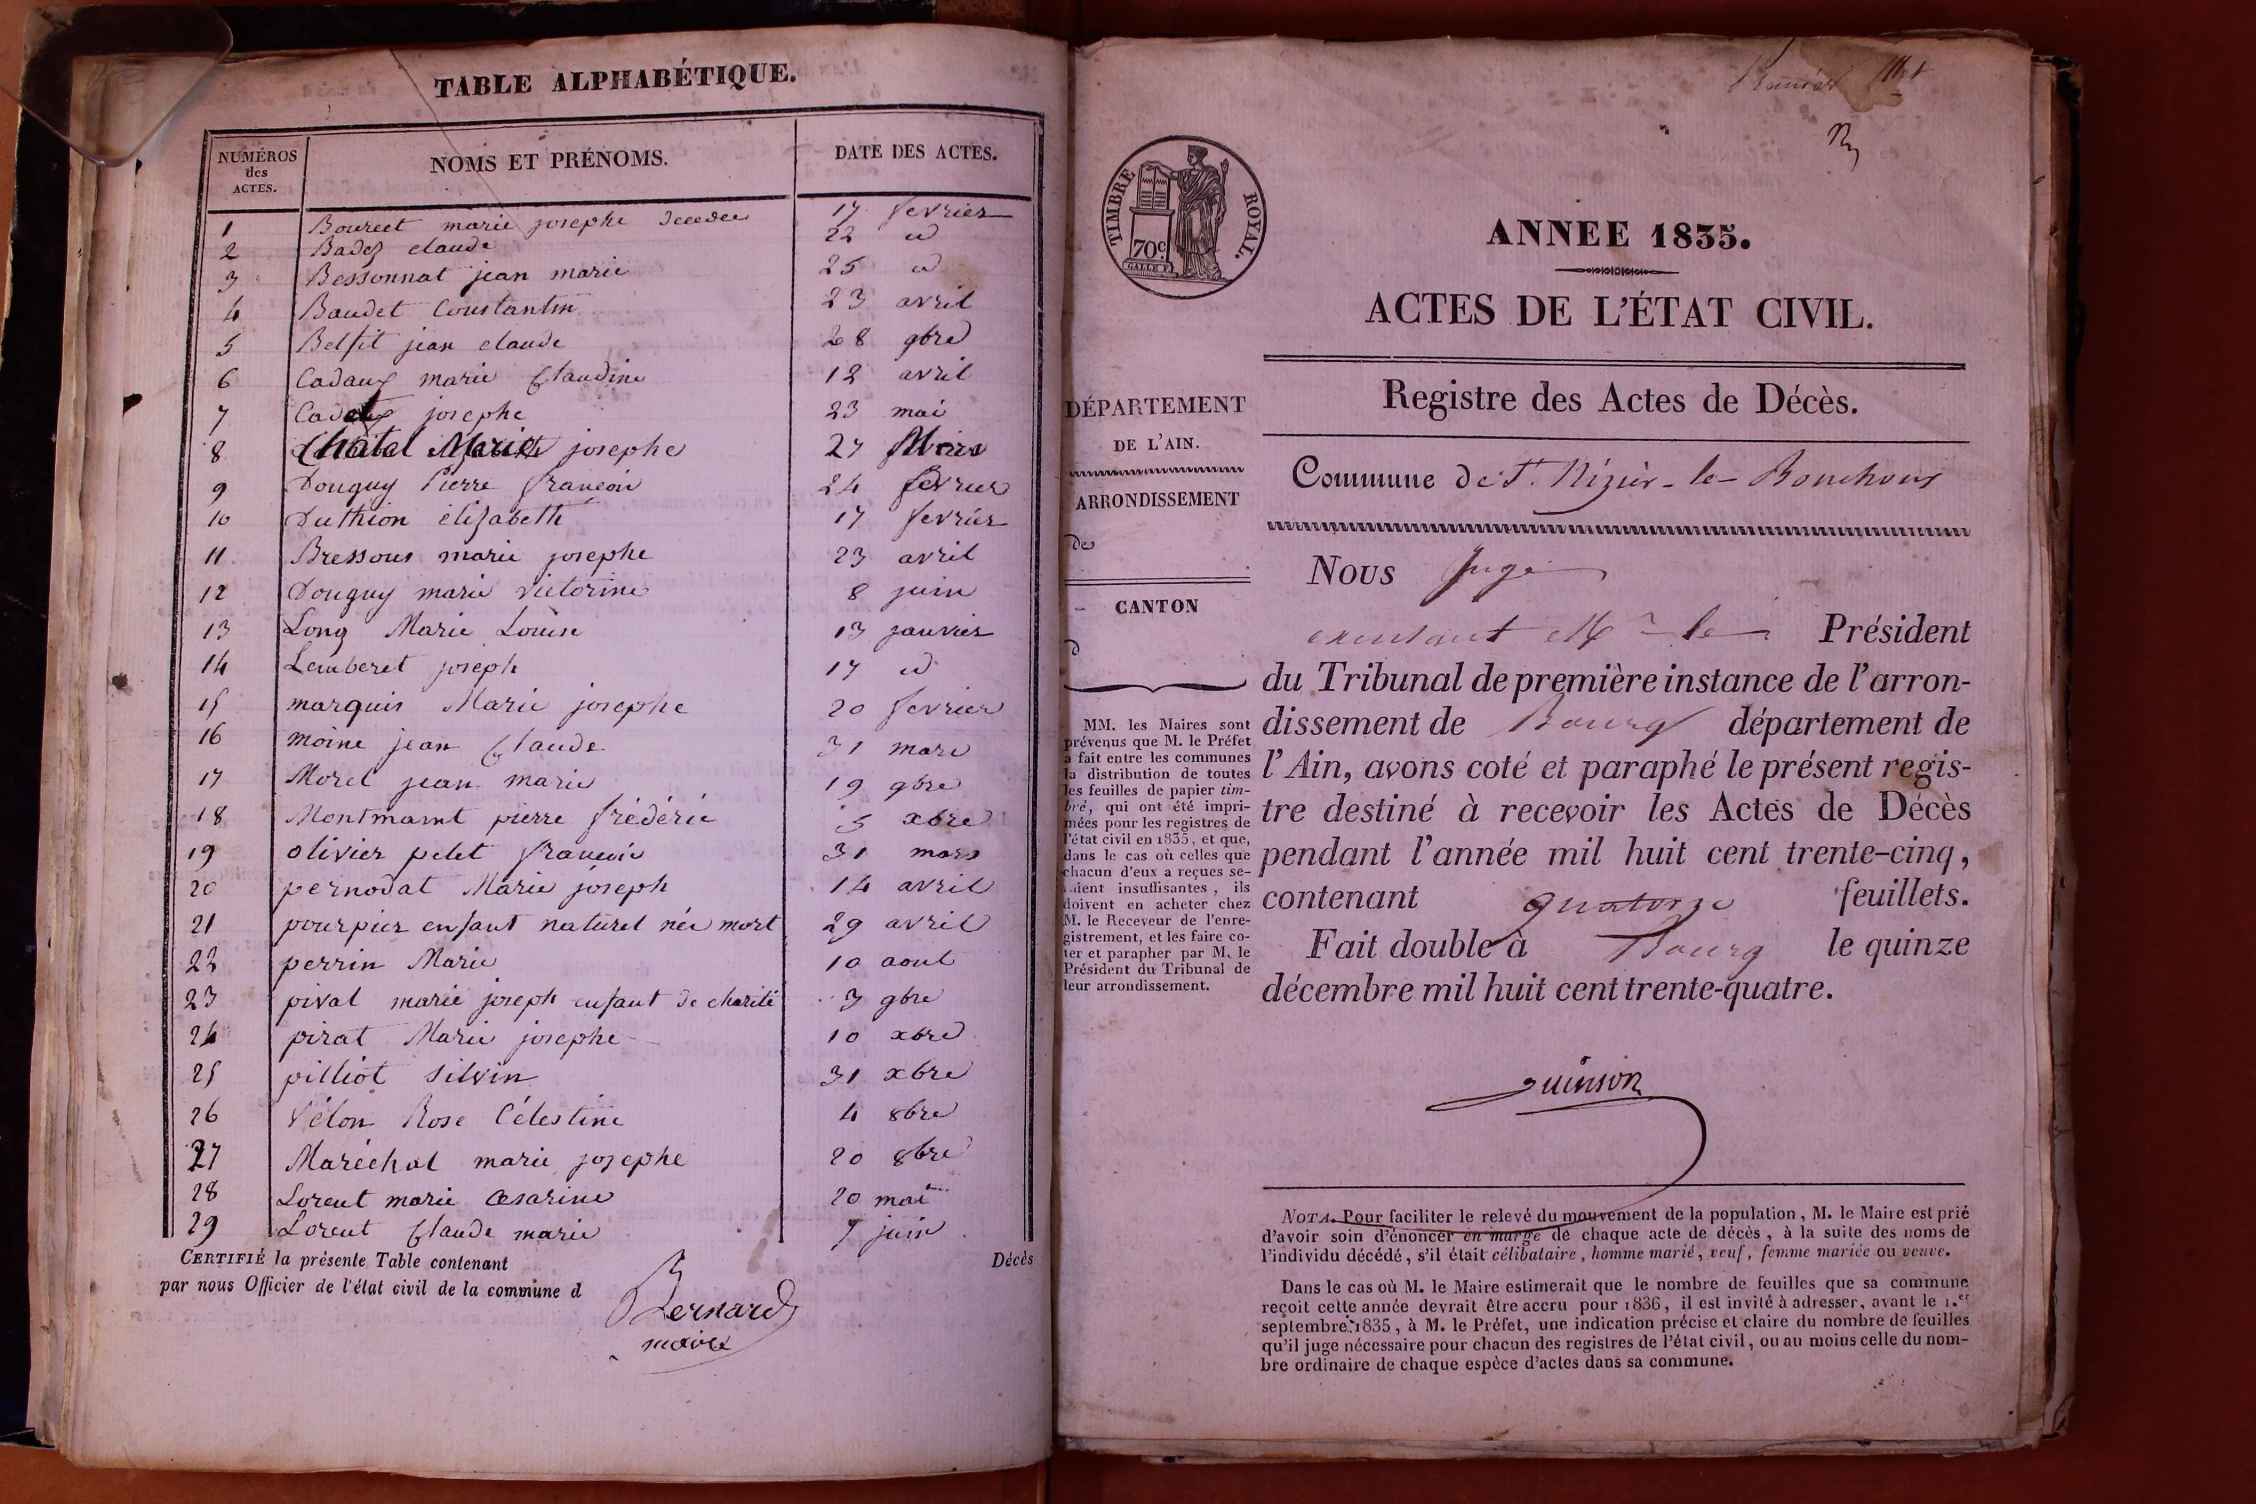 TABLE ALPHABÉTIQUE.
NUMÉROS des ACTES. NOMS ET PRÉNOMS. DATE DES ACTES.
1 Bourcet marie josephe decedee 17 fevrier
2 Badez claude 22 id
3 Bessonnat jean marie 25 id
4 Baudet Constantin 23 avril
5 Belfit jean claude 28 9bre
6 Cadaux marie Claudine 12 avril
7 josephe 23 mai
8 Chatel Marie josephe 27 Mars
9 Douguy Pierre francois 24 fevrier
10 Duthion elizabeth 17 fevrier
11 Bressous marie josephe 23 avril
12 Douguy marie victorine 8 juin
13 Long Marie Louise 13 janvier
14 Lamberet joseph 17 id
15 marquis Marie josephe 20 fevrier
16 moine jean Claude 31 mars
17 Morel jean marie 19 9bre
18 Montmaint pierre frédéric 5 xbre
19 olivier petet francois 31 mars
20 pernodat Marie joseph 14 avril
21 pourpier enfant naturel née mort 29 avril
22 perrin Marie 10 aout
23 pival marie joseph enfant de charité 3 9bre
24 pirat Marie josephe 10 xbre
25 pilliot silvin 31 xbre
26 Vélon Rose Célestine 4 8bre
27 Maréchal marie josephe 20 8bre
28 Lorent marie Cesarine 20 mai
29 Lorent Claude marie 7 juin
CERTIFIÉ la présente Table contenant Décès
par nous Officier de l'état civil de la commune d
Bernard
maire
TIMBRE ROYAL.
70c.
ANNEE 1835.
ACTES DE L'ÉTAT CIVIL.
Registre des Actes de Décès.
Commune de St. Nizier-le-Bouchoux
DÉPARTEMENT
DE L'AIN.
ARRONDISSEMENT
de
CANTON
d
MM. les Maires sont
prévenus que M. le Préfet
a fait entre les communes
la distribution de toutes
les feuilles de papier tim-
bré, qui ont été impri-
mées pour les registres de
l'état civil en 1835, et que,
dans le cas où celles que
chacun d'eux a reçues se-
raient insuffisantes, ils
doivent en acheter chez
M. le Receveur de l'enre-
gistrement, et les faire co-
ter et parapher par M. le
Président du Tribunal de
leur arrondissement.
Nous Juge
exentant Mr le Président
du Tribunal de première instance de l'arron-
dissement de Bourg département de
l'Ain, avons coté et paraphé le présent regis-
tre destiné à recevoir les Actes de Décès
pendant l'année mil huit cent trente-cinq,
contenant quatorze feuillets.
Fait double à Bourg le quinze
décembre mil huit cent trente-quatre.
Guinson
NOTA. Pour faciliter le relevé du mouvement de la population, M. le Maire est prié
d'avoir soin d'énoncer en marge de chaque acte de décès, à la suite des noms de
l'individu décédé, s'il était célibataire, homme marié, veuf, femme mariée ou veuve.
Dans le cas où M. le Maire estimerait que le nombre de feuilles que sa commune
reçoit cette année devrait être accru pour 1836, il est invité à adresser, avant le 1.er
septembre 1835, à M. le Préfet, une indication précise et claire du nombre de feuilles
qu'il juge nécessaire pour chacun des registres de l'état civil, ou au moins celle du nom-
bre ordinaire de chaque espèce d'actes dans sa commune.